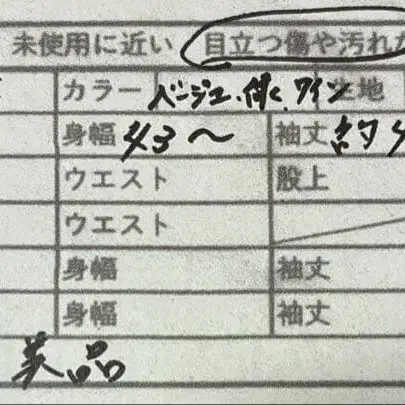 未使用に近い 目立つ傷や汚れな
カラー ベージュ、 、ワイン 生地
身幅 43〜 袖丈 約
ウエスト 股上
ウエスト
身幅 袖丈
身幅 袖丈
美品